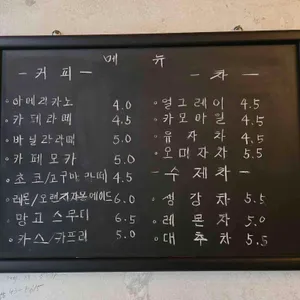 메 뉴
- 커 피 -
아메리카노 4.0
카페라떼 4.5
바닐라라떼 5.0
카페모카 5.0
초코/고구마라떼 4.5
레몬/오렌지자몽에이드 6.0
망고 스무디 6.5
카스/카프리 5.0
- 차 -
얼그레이 4.5
카모마일 4.5
유자차 4.5
오미자차 5.5
- 수제차 -
생강차 5.5
레몬차 5.0
대추차 5.5